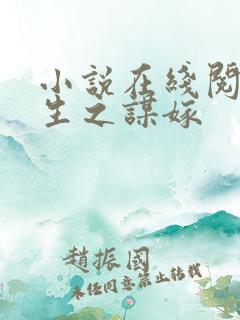 小說在綫閱
生之謀嫁
趙振國
未任同意禁止转載